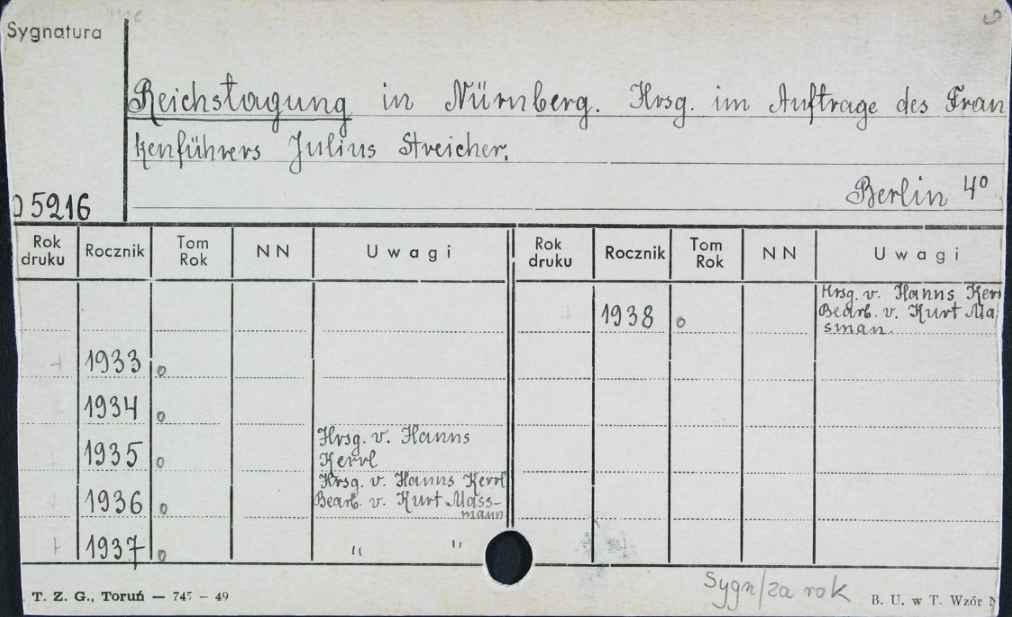 Sygnatura
Reichstagung in Nürnberg. Hrsg. im Auftrage des Fran
kenführers Julius Streicher.
Berlin 4°
D 5216
Rok druku Rocznik Tom Rok NN Uwagi Rok druku Rocznik Tom Rok NN Uwagi
1938 o Hrsg. v. Hanns Kerr
Bearb. v. Kurt Ma
sman.
1933 o
1934 o
1935 o Hrsg. v. Hanns
Kerrl
1936 o Hrsg. v. Hanns Kerrl
Bearb. v. Kurt Mass-
mann
1937 o " "
Sygn/za rok
T. Z. G., Toruń — 747 — 49
B. U. w T. Wzór